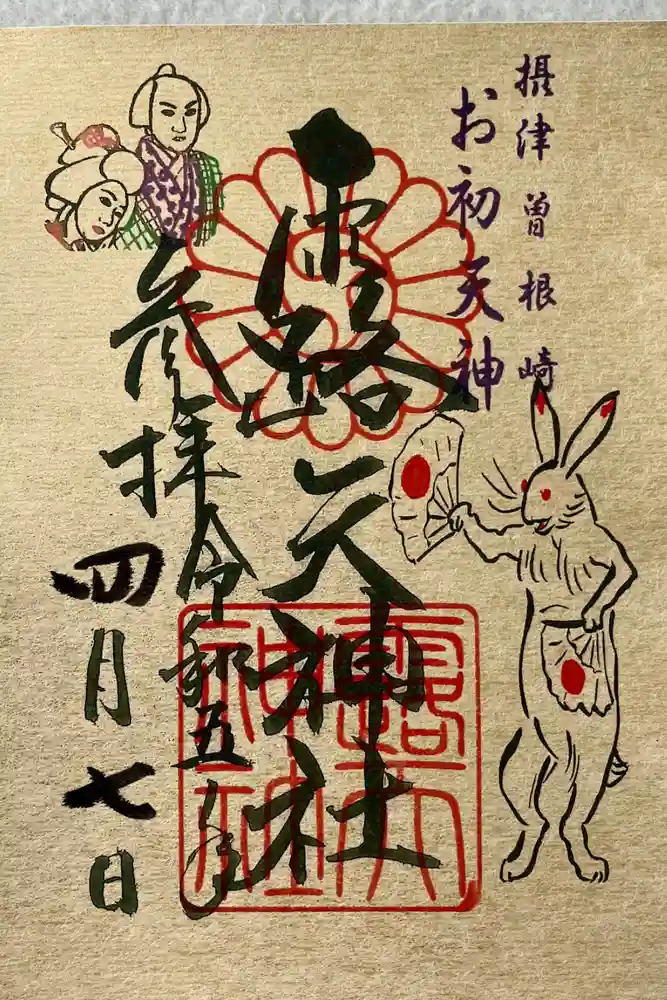 摂津曽根崎
お初天神
露天神社
参拝令和五年
四月七日
露天神社